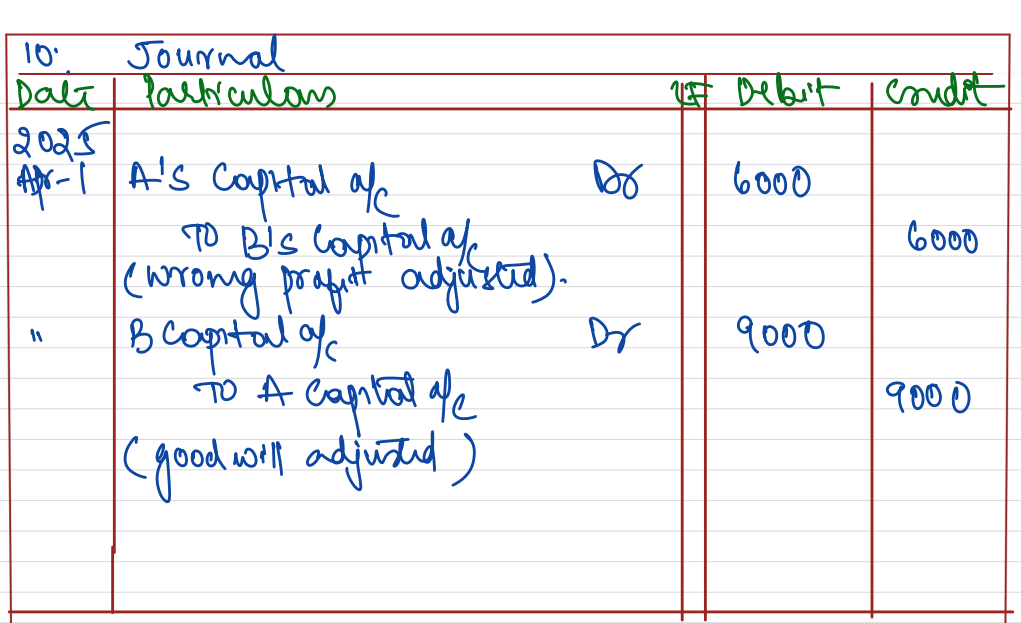 10. Journal
Date Particulars LF Debit Credit
2025
Apr-1 A's Capital a/c Dr 6000
To B's Capital a/c 6000
(wrong profit adjusted).
" B Capital a/c Dr 9000
To A Capital a/c 9000
(goodwill adjusted)